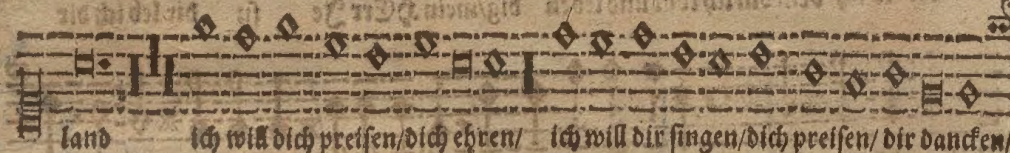 land ich will dich preisen/dich ehren/ ich will dir singen/dich preisen/ dir dancken/